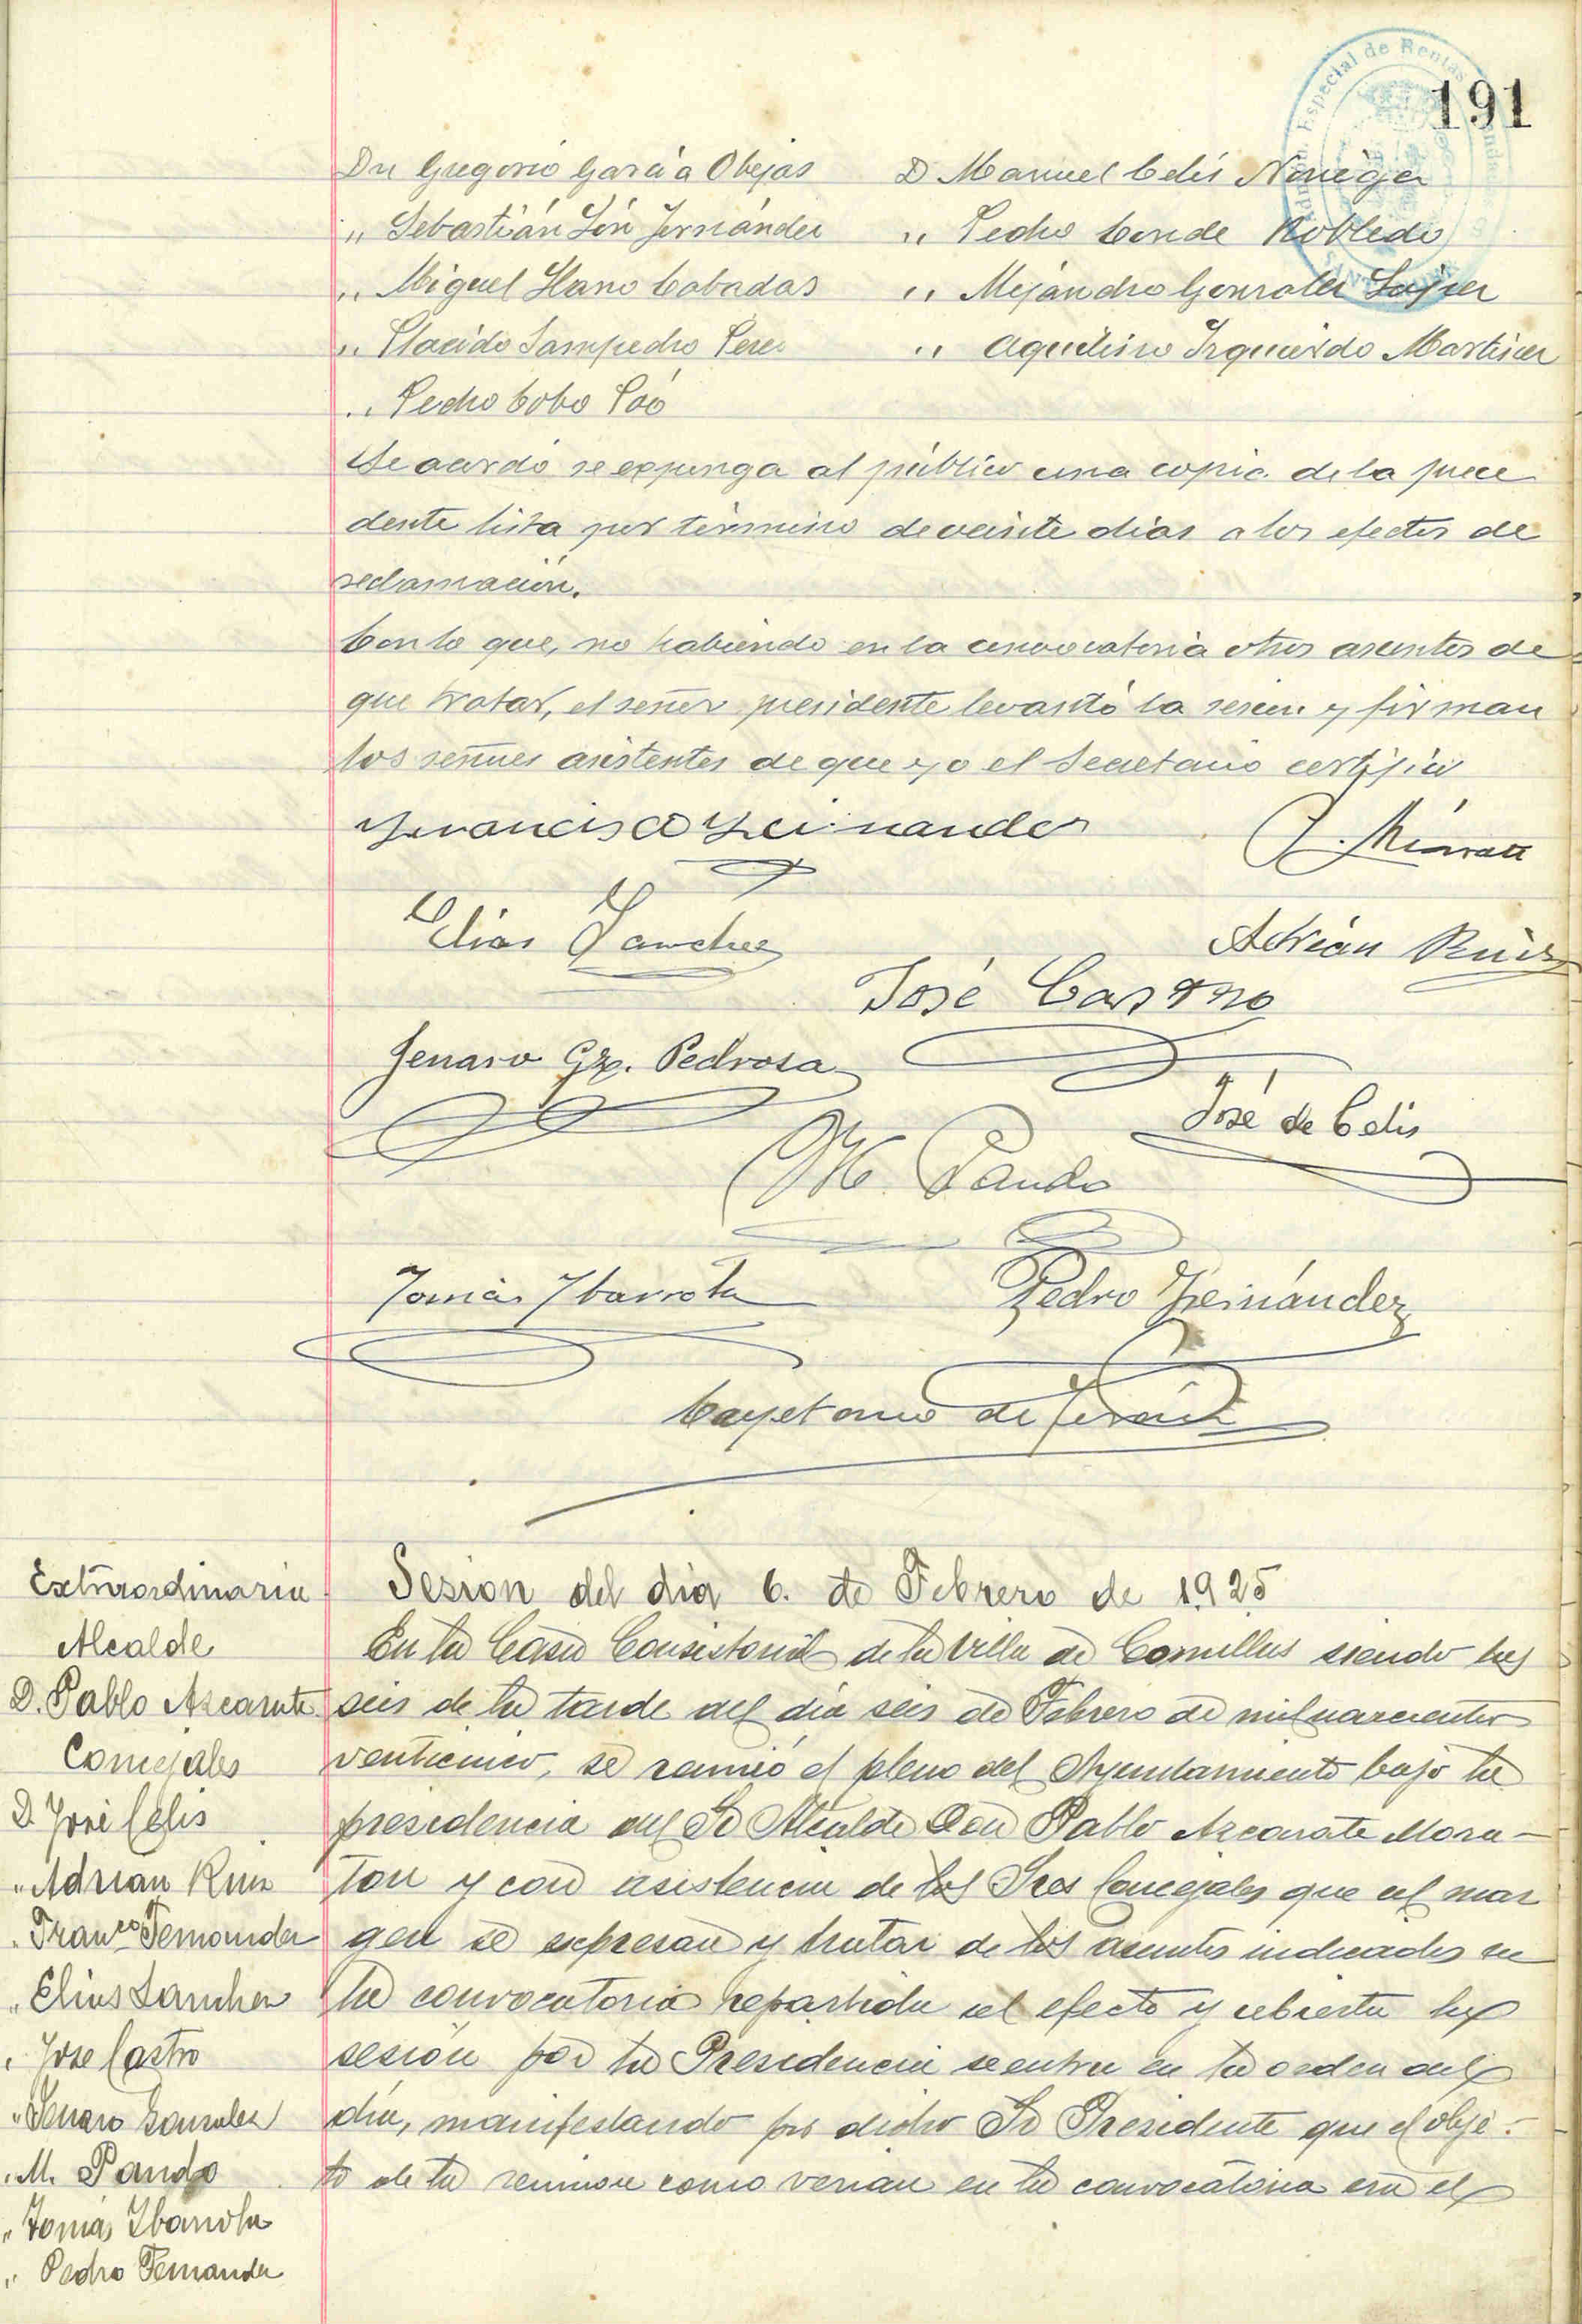 191
Especial de Rentas
Dn Gregorio Garcia Obejas
D Manuel Celis Noriega
" Sebastián Fernández
" Pedro Conde Robledo
" Miguel Llano Cobadas
" Alejandro Gonzalez
" Placido Sampedro Perez
" Aquilino Izquierdo Martinez
" Pedro Cobo Poó
Se acordó se exponga al público una copia de la prece
dente lista por término de veinte dias a los efectos de
reclamación.
Con lo que, no habiendo en la convocatoria otros asuntos de
que tratar, el señor presidente levantó la sesion y firman
los señores asistentes de que yo el Secretario certifico
Francisco Fernandez
Elias Sanchez
Adrián Ruiz
José Castro
Genaro Gz. Pedrosa
José de Celis
M. Pando
Tomás Ybarrola
Pedro Fernández
Cayetano de
Extraordinaria
Sesion del dia 6. de Febrero de 1925
Alcalde
En la Casa Consistorial de la Villa de Comillas siendo las
D. Pablo Azcarate
seis de la tarde del dia seis de Febrero de mil novecientos
Concejales
venticinco, se reunió el pleno del Ayuntamiento bajo la
D José Celis
presidencia del Sr Alcalde Don Pablo Azcarate Mora-
" Adrian Ruiz
ton y con asistencia de los Sres Concejales que al mar
" Franco Fernandez
gen se expresan y tratar de los asuntos indicados en
" Elias Sanchez
la convocatoria repartida al efecto y abierta la
" Jose Castro
sesión por la Presidencia se entra en la orden del
" Genaro Gonzalez
dia, manifestando por dicho Sr Presidente que el obje-
" M. Pando
to de la reunion como verian en la convocatoria era el
" Tomás Ybarrola
" Pedro Fernandez